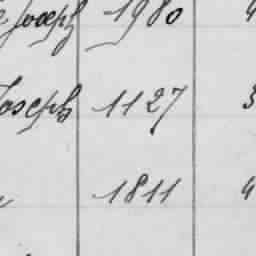 Joseph 1980 4
Joseph 1127 3
1811 4